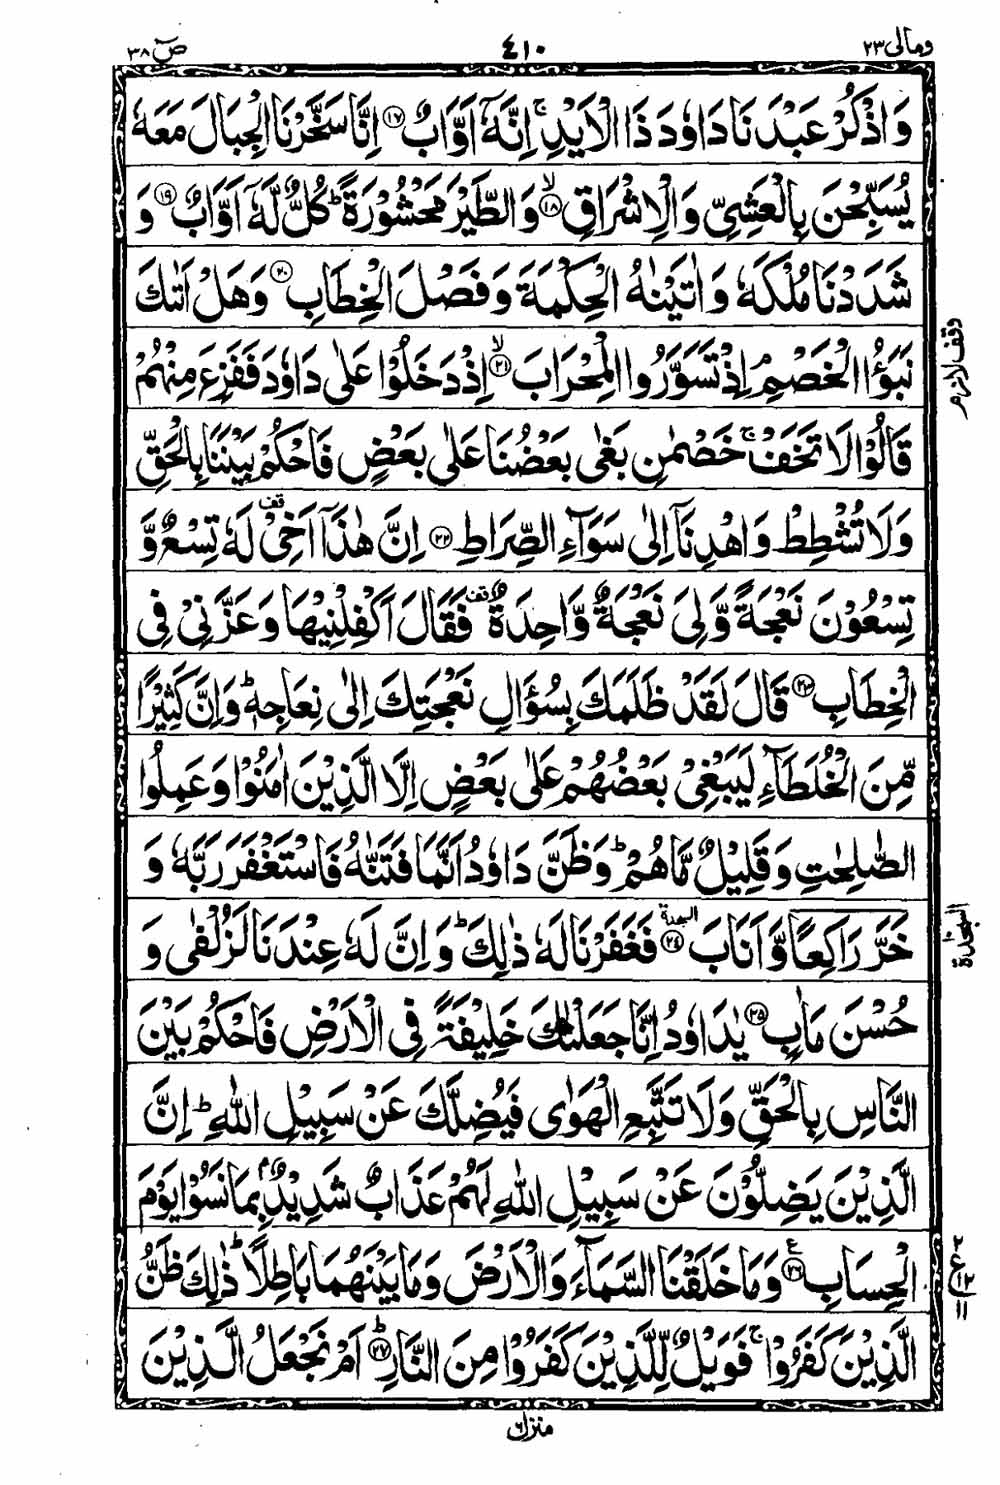 ومالی ۲۳ ٤١٠ صٓ ۳۸
وَاذْكُرْ عَبْدَنَا دَاوٗدَ ذَا الْاَيْدِ ۚ اِنَّهٗۤ اَوَّابٌ ﴿۱۷﴾ اِنَّا سَخَّرْنَا الْجِبَالَ مَعَهٗ
يُسَبِّحْنَ بِالْعَشِيِّ وَالْاِشْرَاقِ ﴿۱۸﴾ۙ وَالطَّيْرَ مَحْشُوْرَةً ؕ كُلٌّ لَّهٗۤ اَوَّابٌ ﴿۱۹﴾ وَ
شَدَدْنَا مُلْكَهٗ وَاٰتَيْنٰهُ الْحِكْمَةَ وَفَصْلَ الْخِطَابِ ﴿۲۰﴾ وَهَلْ اَتٰىكَ
نَبَؤُا الْخَصْمِ ۘ اِذْ تَسَوَّرُوا الْمِحْرَابَ ﴿۲۱﴾ۙ اِذْ دَخَلُوْا عَلٰى دَاوٗدَ فَفَزِعَ مِنْهُمْ
قَالُوْا لَا تَخَفْ ۚ خَصْمٰنِ بَغٰى بَعْضُنَا عَلٰى بَعْضٍ فَاحْكُمْ بَيْنَنَا بِالْحَقِّ
وَلَا تُشْطِطْ وَاهْدِنَاۤ اِلٰى سَوَآءِ الصِّرَاطِ ﴿۲۲﴾ اِنَّ هٰذَاۤ اَخِيْ ۫ لَهٗ تِسْعٌ وَّ
تِسْعُوْنَ نَعْجَةً وَّلِيَ نَعْجَةٌ وَّاحِدَةٌ ۫ فَقَالَ اَكْفِلْنِيْهَا وَعَزَّنِيْ فِي
الْخِطَابِ ﴿۲۳﴾ قَالَ لَقَدْ ظَلَمَكَ بِسُؤَالِ نَعْجَتِكَ اِلٰى نِعَاجِهٖ ؕ وَاِنَّ كَثِيْرًا
مِّنَ الْخُلَطَآءِ لَيَبْغِيْ بَعْضُهُمْ عَلٰى بَعْضٍ اِلَّا الَّذِيْنَ اٰمَنُوْا وَعَمِلُوا
الصّٰلِحٰتِ وَقَلِيْلٌ مَّا هُمْ ؕ وَظَنَّ دَاوٗدُ اَنَّمَا فَتَنّٰهُ فَاسْتَغْفَرَ رَبَّهٗ وَ
خَرَّ رَاكِعًا وَّاَنَابَ ﴿۲٤﴾ السجدة فَغَفَرْنَا لَهٗ ذٰلِكَ ؕ وَاِنَّ لَهٗ عِنْدَنَا لَزُلْفٰى وَ
حُسْنَ مَاٰبٍ ﴿۲۵﴾ يٰدَاوٗدُ اِنَّا جَعَلْنٰكَ خَلِيْفَةً فِي الْاَرْضِ فَاحْكُمْ بَيْنَ
النَّاسِ بِالْحَقِّ وَلَا تَتَّبِعِ الْهَوٰى فَيُضِلَّكَ عَنْ سَبِيْلِ اللّٰهِ ؕ اِنَّ
الَّذِيْنَ يَضِلُّوْنَ عَنْ سَبِيْلِ اللّٰهِ لَهُمْ عَذَابٌ شَدِيْدٌۢ بِمَا نَسُوْا يَوْمَ
الْحِسَابِ ﴿۲۶﴾ ع وَمَا خَلَقْنَا السَّمَآءَ وَالْاَرْضَ وَمَا بَيْنَهُمَا بَاطِلًا ؕ ذٰلِكَ ظَنُّ
الَّذِيْنَ كَفَرُوْا ۚ فَوَيْلٌ لِّلَّذِيْنَ كَفَرُوْا مِنَ النَّارِ ﴿۲۷﴾ؕ اَمْ نَجْعَلُ الَّذِيْنَ
وقف لازم
السجدة
ع
منزل ۶